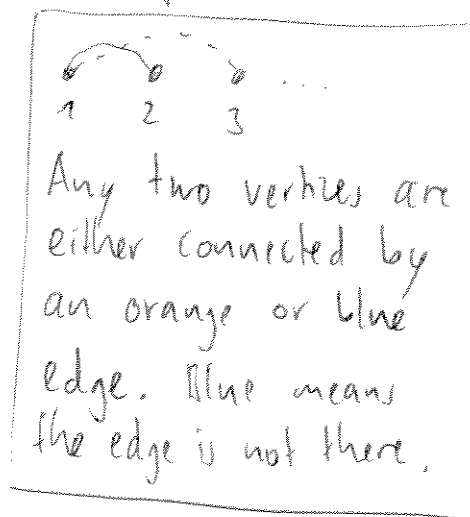 1 2 3 ...
Any two vertizes are
either connected by
an orange or blue
edge. Blue means
the edge is not there.